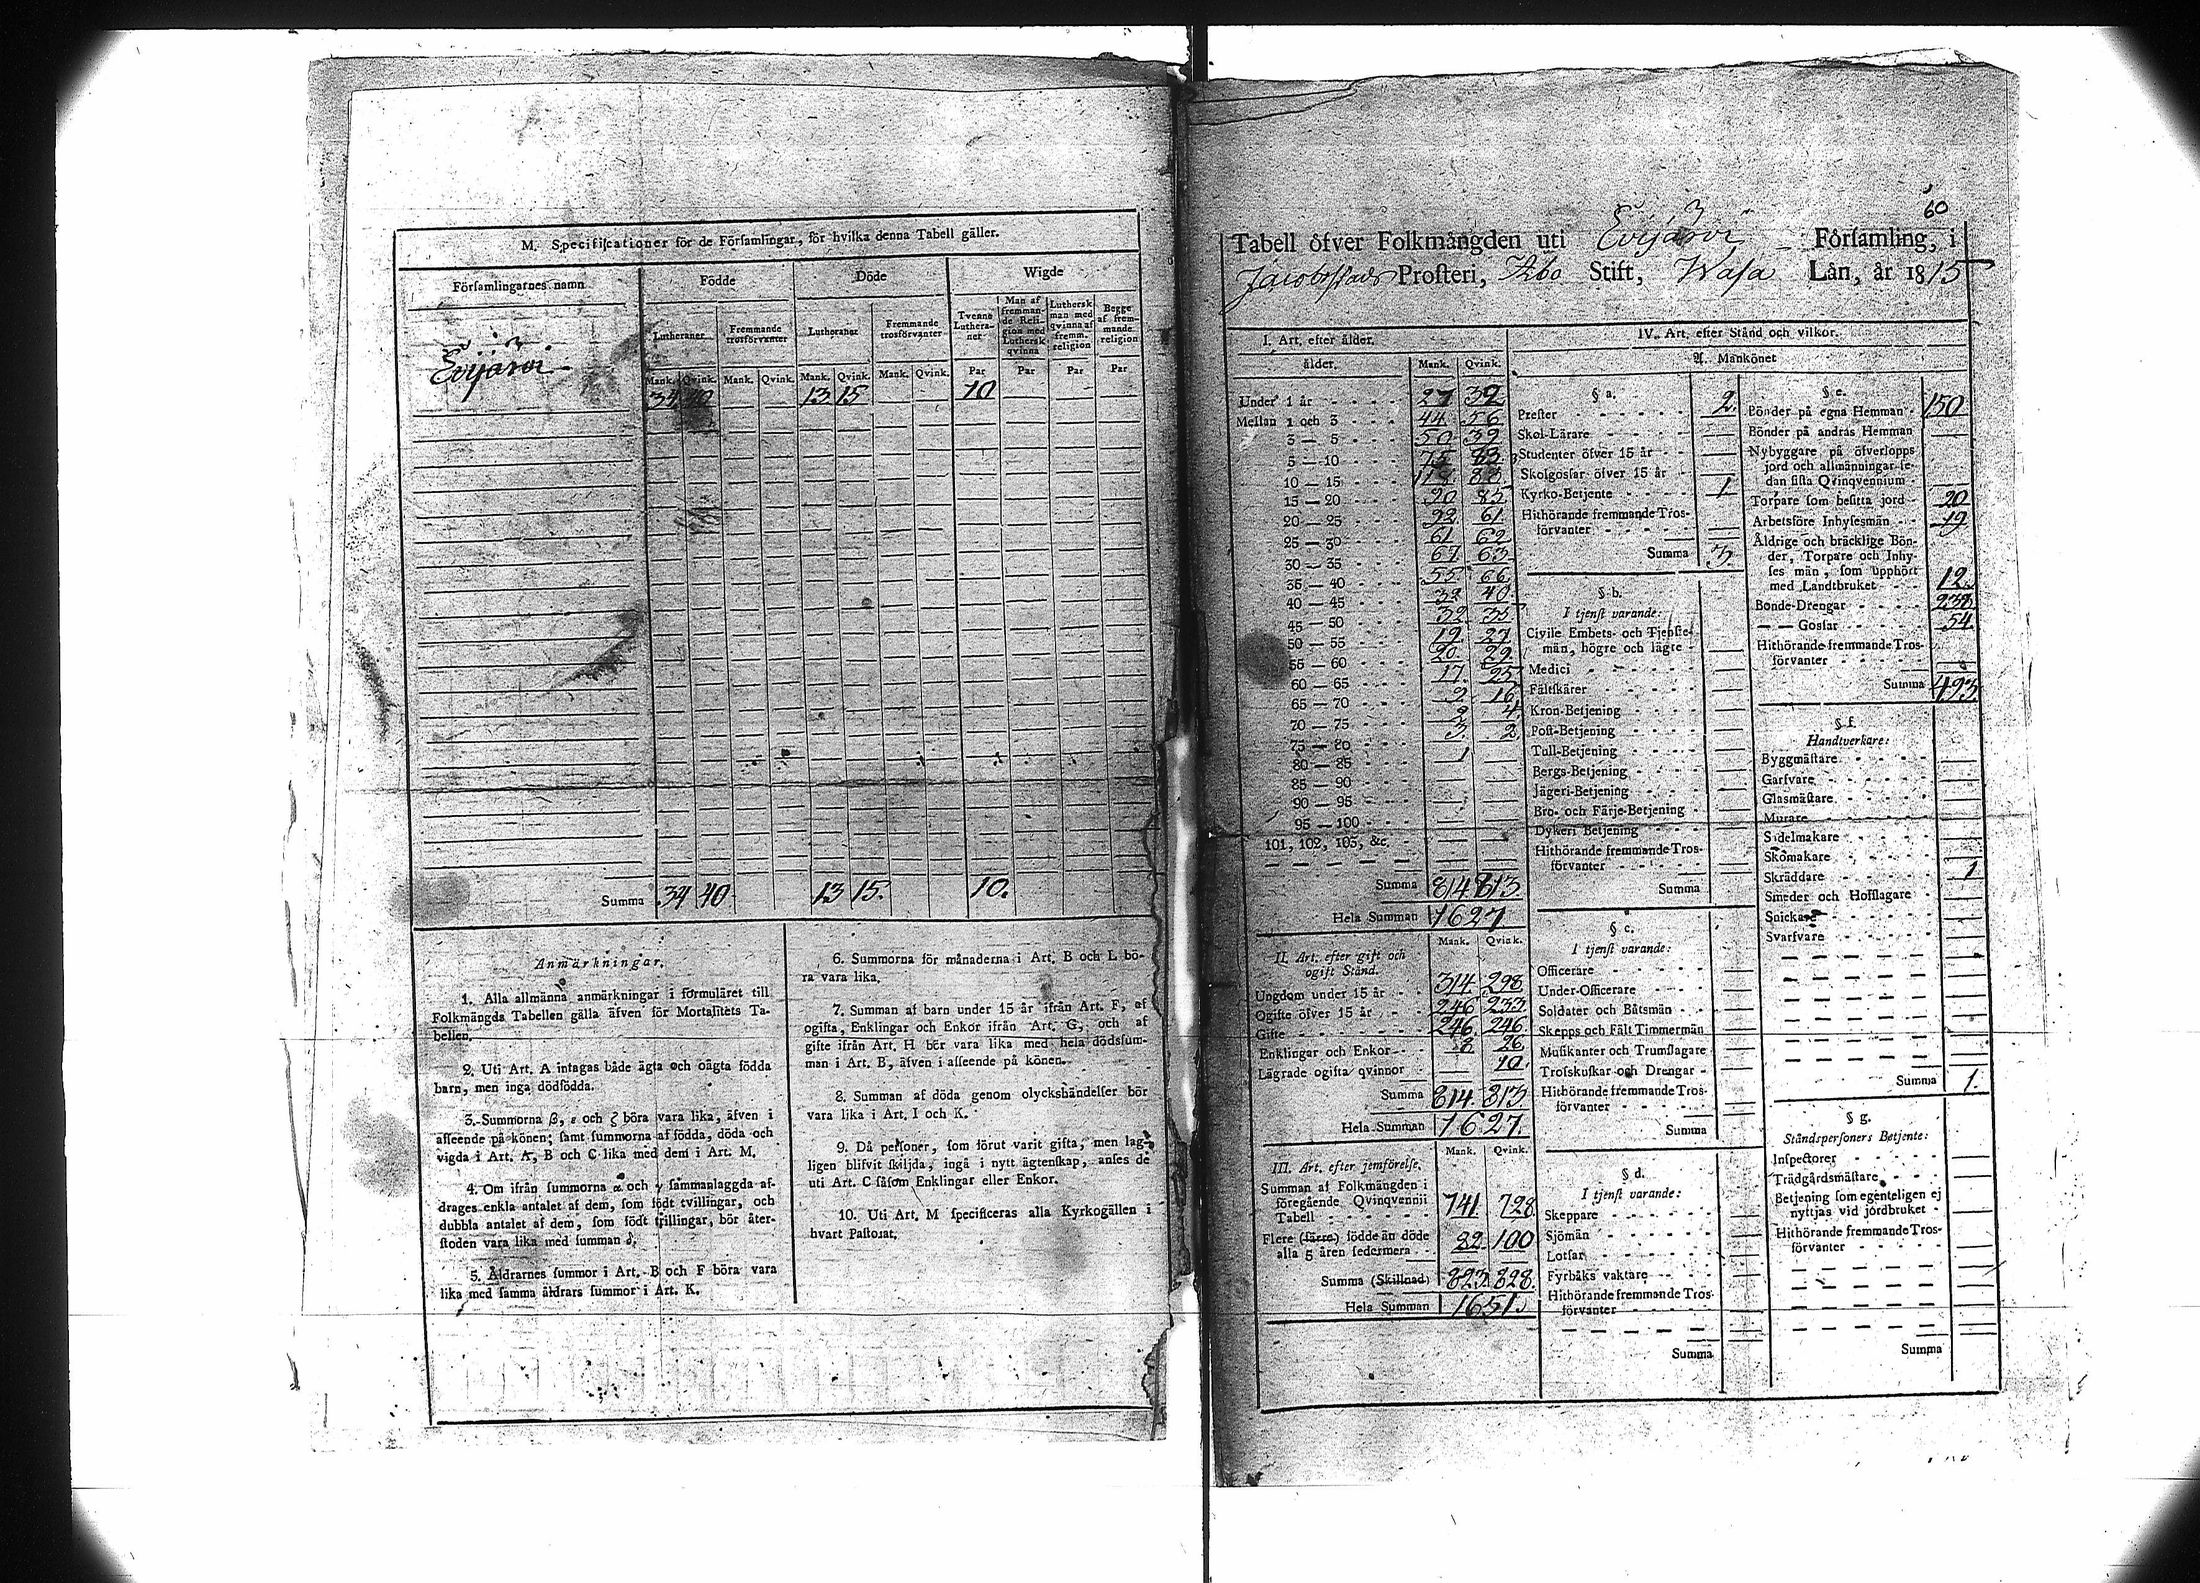 M. Specificationer för de Församlingar, för hvilka denna Tabell gäller.
Församlingarnes namn
Födde
Döde
Wigde
Lutheraner
Fremmande trosförvanter
Lutheraner
Fremmande trosförvanter
Tvenne Lutheraner
Man af fremmande Religion med Luthersk qvinna
Luthersk man med qvinna af fremm. religion
Begge af fremmande religion
Mank. Qvink. Mank. Qvink. Mank. Qvink. Mank. Qvink. Par Par Par Par
Evijärvi
34 40 13 15 10
Summa 34 40 13 15. 10.
Anmärkningar.
1. Alla allmänna anmärkningar i formuläret till
Folkmängds Tabellen gälla äfven för Mortalitets Ta-
bellen.
2. Uti Art. A intagas både ägta och oägta födda
barn, men inga dödfödda.
3. Summorna β, ε och ζ böra vara lika, äfven i
afseende på könen; samt summorna af födda, döda och
vigda i Art. A, B och C lika med dem i Art. M.
4. Om ifrån summorna α och γ sammanlaggda af-
drages enkla antalet af dem, som födt tvillingar, och
dubbla antalet af dem, som födt trillingar, bör åter-
stoden vara lika med summan δ.
5. Åldrarnes summor i Art. B och F böra vara
lika med samma åldrars summor i Art. K.
6. Summorna för månaderna i Art. B och L bö-
ra vara lika.
7. Summan af barn under 15 år ifrån Art. F, af
ogifta, Enklingar och Enkor ifrån Art. G, och af
gifte ifrån Art. H bör vara lika med hela dödssum-
man i Art. B, äfven i afseende på könen.
8. Summan af döda genom olyckshändelser bör
vara lika i Art. I och K.
9. Då personer, som förut varit gifta, men lag-
ligen blifvit skiljda, ingå i nytt ägtenskap, anses de
uti Art. C såsom Enklingar eller Enkor.
10. Uti Art. M specificeras alla Kyrkogällen i
hvart Pastorat.
60
Tabell öfver Folkmängden uti Evijärvi Församling, i
Jacobstads Prosteri, Åbo Stift, Wasa Län, år 1815
I. Art. efter ålder.
ålder. Mank. Qvink.
Under 1 år 27 32
Mellan 1 och 3 44 56
3 — 5 50 39
5 — 10 75 83
10 — 15 118 88
15 — 20 90 85
20 — 25 92 61
25 — 30 61 62
30 — 35 67 63
35 — 40 55 66
40 — 45 32 40
45 — 50 32 35
50 — 55 19 27
55 — 60 20 29
60 — 65 17 25
65 — 70 9 16
70 — 75 2 4
75 — 80 3 2
80 — 85 1
85 — 90
90 — 95
95 — 100
101, 102, 103, &c.
Summa 814 813
Hela Summan 1627.
II. Art. efter gift och
ogift Stånd.
Mank. Qvink.
Ungdom under 15 år 314 298
Ogifte öfver 15 år 246 233
Gifte 246 246
Enklingar och Enkor 8 26
Lägrade ogifta qvinnor 10.
Summa 814. 813
Hela Summan 1627.
III. Art. efter jemförelse.
Mank. Qvink.
Summan af Folkmängden i
föregående Qvinqvennii
Tabell 741 728
Flere (färre) födde än döde
alla 5 åren sedermera 82 100
Summa (Skillnad) 823 828.
Hela Summan 1651.
IV. Art. efter Stånd och vilkor.
A. Mankönet
§ a.
Prester 2.
Skol-Lärare
Studenter öfver 15 år
Skolgossar öfver 15 år
Kyrko-Betjente 1
Hithörande fremmande Tros-
förvanter
Summa 3.
§ b.
I tjenst varande:
Civile Embets- och Tjenste-
män, högre och lägre
Medici
Fältskärer
Kron-Betjening
Post-Betjening
Tull-Betjening
Bergs-Betjening
Jägeri-Betjening
Bro- och Färje-Betjening
Dykeri Betjening
Hithörande fremmande Tros-
förvanter
Summa
§ c.
I tjenst varande:
Officerare
Under-Officerare
Soldater och Båtsmän
Skepps och Fält Timmermän
Musikanter och Trumslagare
Trosskuskar och Drengar
Hithörande fremmande Tros-
förvanter
Summa
§ d.
I tjenst varande:
Skeppare
Sjömän
Lotsar
Fyrbåks vaktare
Hithörande fremmande Tros-
förvanter
Summa
§ e.
Bönder på egna Hemman 150
Bönder på andras Hemman
Nybyggare på öfverlopps
jord och allmänningar se-
dan sista Qvinqvennium
Torpare som besitta jord 20
Arbetsföre Inhysesmän 19
Åldrige och bräcklige Bön-
der, Torpare och Inhy-
ses män, som upphört
med Landtbruket 12
Bonde-Drengar 238
— — Gossar 54
Hithörande fremmande Tros-
förvanter
Summa 493
§ f.
Handtverkare:
Byggmästare
Garfvare
Glasmästare
Murare
Sadelmakare
Skomakare
Skräddare 1
Smeder och Hofslagare
Snickare
Svarfvare
Summa 1.
§ g.
Ståndspersoners Betjente:
Inspectorer
Trädgårdsmästare
Betjening som egenteligen ej
nyttjas vid jordbruket
Hithörande fremmande Tros-
förvanter
Summa